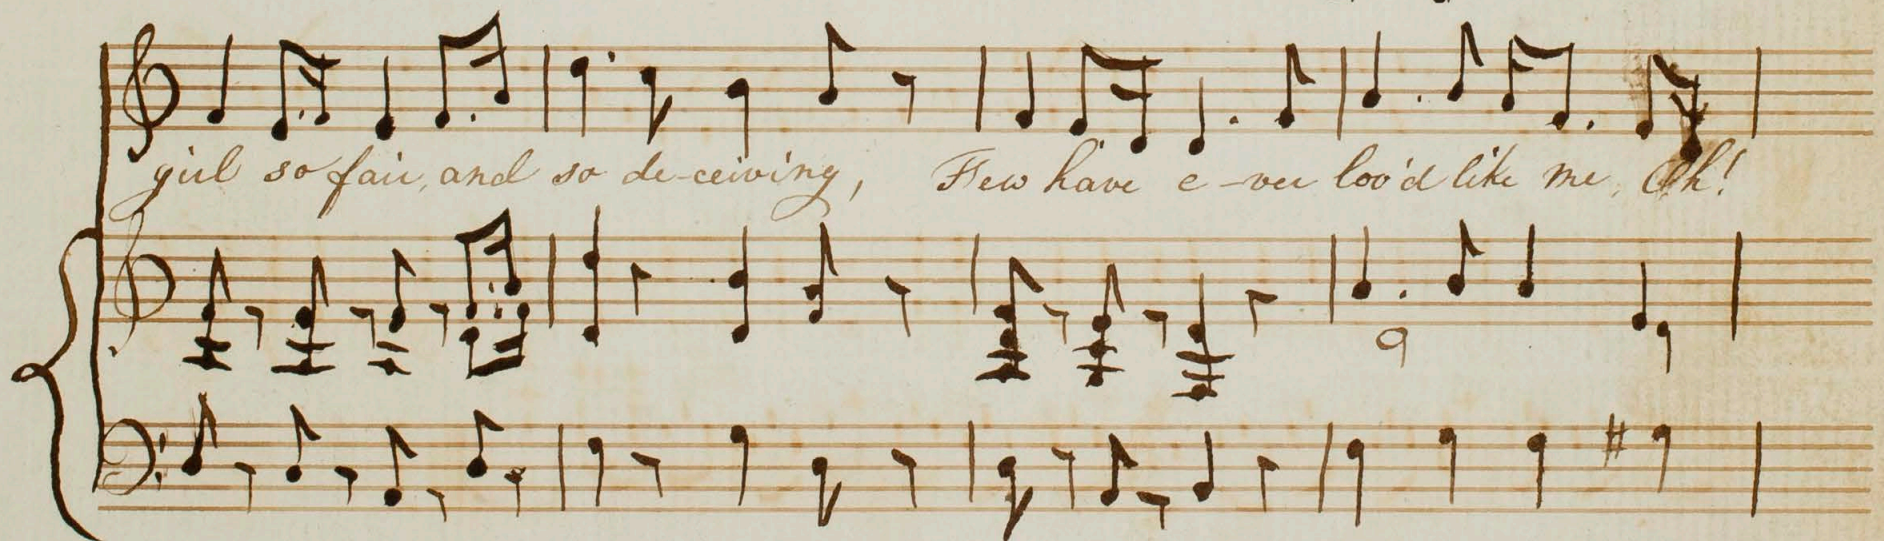 girl so fair, and so de-ceiving, Few have e-ver lov'd like me, Oh!